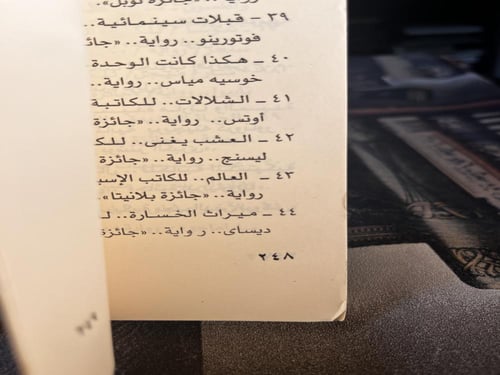 رواية.. «جائزة نوبل».
٣٩ - قبلات سينمائية..
فوتورينو.. رواية.. «جائز
٤٠ - هكذا كانت الوحدة
خوسيه مياس.. رواية..
٤١ - الشلالات.. للكاتبة
أوتس.. رواية.. «جائزة
٤٢ - العشب يغنى.. للك
ليسنج.. رواية.. «جائزة
٤٣ - العالم.. للكاتب الإسب
رواية.. «جائزة بلانيتا».
٤٤ - ميراث الخسارة.. لـ
ديساى.. رواية.. «جائزة
٢٤٨